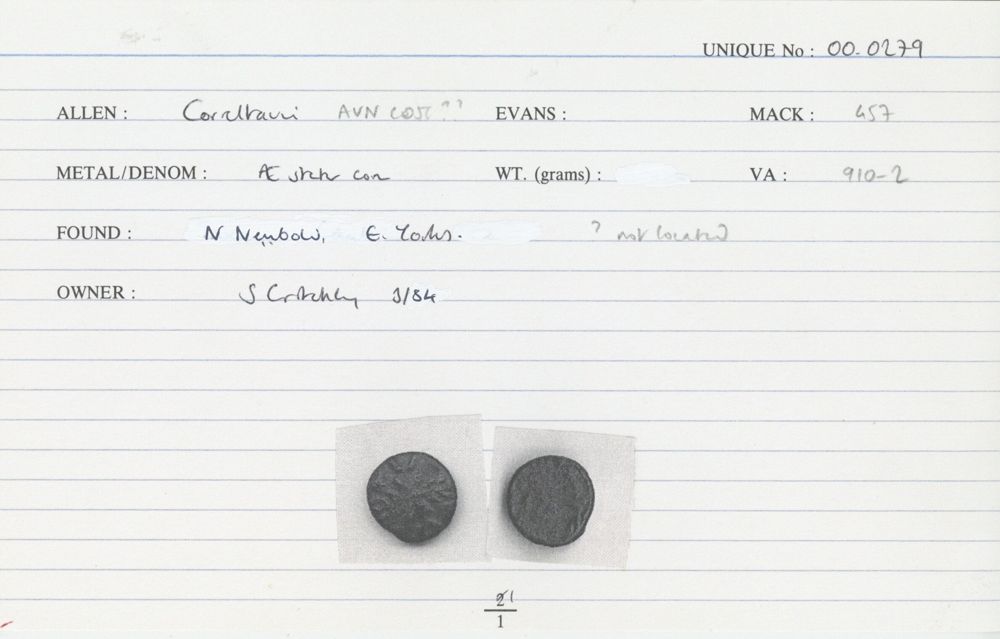 UNIQUE No : 00-0279
ALLEN : Corieltauvi AVN COST ?? EVANS : MACK : 457
METAL/DENOM : Æ stater core WT. (grams) : VA : 910-2
FOUND : N Newbald, E. Yorks. ? not located
OWNER : S Critchley 3/84
21
1